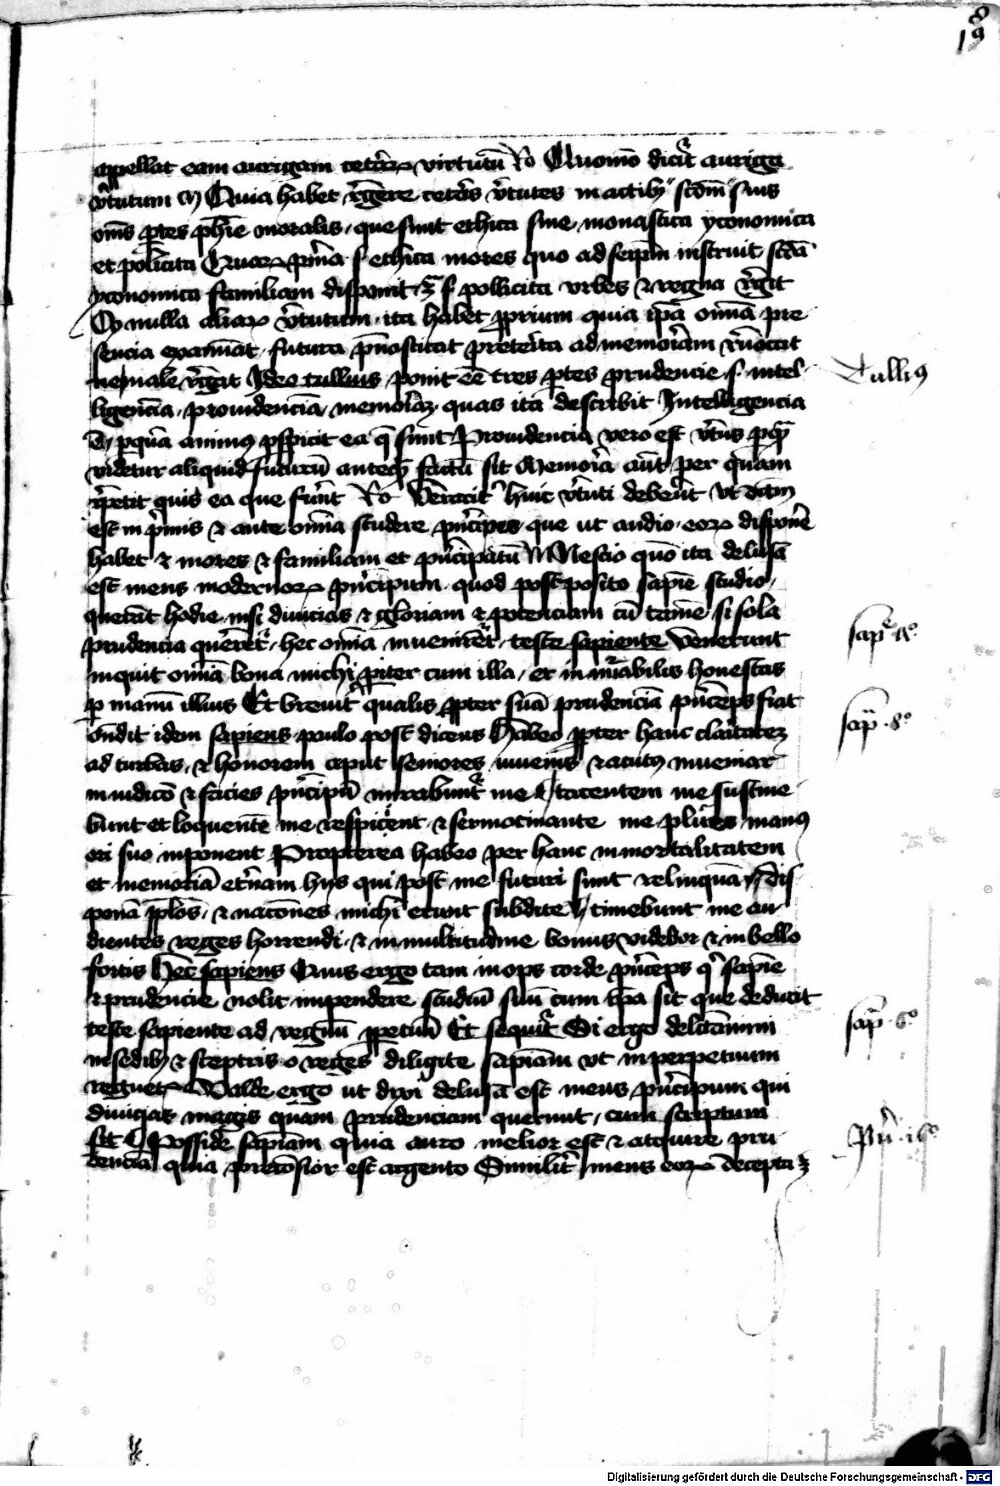 198
appellat eam aurigam ceterarꝝ virtutū Ro Quomō dicit͛ auriga
v͛tutum M Quia habet r͛gere ceteras v͛tutes in actibꝫ scdm̄ suis
om̄s ꝑtes ph̄ie moralis, que sunt ethica siue monastica yconomica
et pollicita Quarꝝ p͛ma s ethica mores quo ad seip̄m instruit scd̄a
yconomica familiam disponit, s pollicita vrbes & regna r͛git
nulla aliarꝝ v͛tutum ita habet ꝓprium quia ip̄a om̄ia pre
sencia examinat, futura p̄nosticat preterita ad memoriam r͛uocat
ne male r͛gat Ideo tullius ponit eē tres ꝑtes prudencie, s, intel
Tulliꝰ
ligencia, prouidencia, memoria, quas ita describit Intelligencia
ē, ꝑ quā animꝰ ꝑspicit ea q̄ sunt Prouidencia vero est v͛tus ꝑ quā
videtur aliquid futurū anteqꝫ factū sit Memoria aūt per quam
r͛petit quis ea que fu͛nt Ro huic v͛tuti debe͛nt vt
est in p͛mis & ante om̄ia studere p͛ncipes, que ut audio, eorꝝ disponē
habet & mores & familiam et p͛ncipatū M Nescio quō ita delusa
est mens modernorꝝ p͛ncipum, quod post posito sapiē studio,
querāt hodie nisi diuicias & gloriam & potenciam cū tamē si sola
prudencia quereret͛, hec om̄ia inuenirēt͛, teste sapiente Venerunt
sapͤ
inquit om̄ia bona michi pariter cum illa, et in nu͛abilis honestas
ꝑ manū illius Et breuit͛ qualis ꝓpter suā prudenciā p͛nceps fiat
sap̄ 8º
ōndit idem sapiens paulo post dicens Habeo ꝓpter hanc claritatem
ad turbas, & honorem aput seniores iuuenis & acutꝰ inueniar
in iudicō & facies p͛ncipū mirabunt͛ me tacentem me sustine
bunt et loquentē me respicient & sermocinante me plures manꝰ
ori suo inponent Propterea habeo per hanc inmortalitatem
et memoriā et͛nam hijs qui post me futuri sunt relinquā dis
ponā pꝉos, & nacōnes michi erunt subdite timebunt me au
dientes reges horrendi, & in multitudine bonus videbor & in bello
fortis Hec sapiens Quis ergo tam inops corde p͛nceps q͛ sapiē
& prudencie nolit impendere studiū suū cum ip̄a sit que deducit
teste sapiente ad regnū ꝑpetuū Et sequit͛ Si ergo delectamini
sap̄ 6º
in sedibꝫ & sceptris o reges diligite sapiāam vt inperpetuum
regnetꝭ Valde ergo ut dixi delusa est mens p͛ncipum qui
diuicias magis quam prudenciam querunt, cum scriptum
sit Posside sapiām quia auro melior est & acquire pru
Pu͛ 16º
denciā quia preciōsior est argento Similit͛ mens eorꝝ decepta
Digitalisierung gefördert durch die Deutsche Forschungsgemeinschaft - DFG